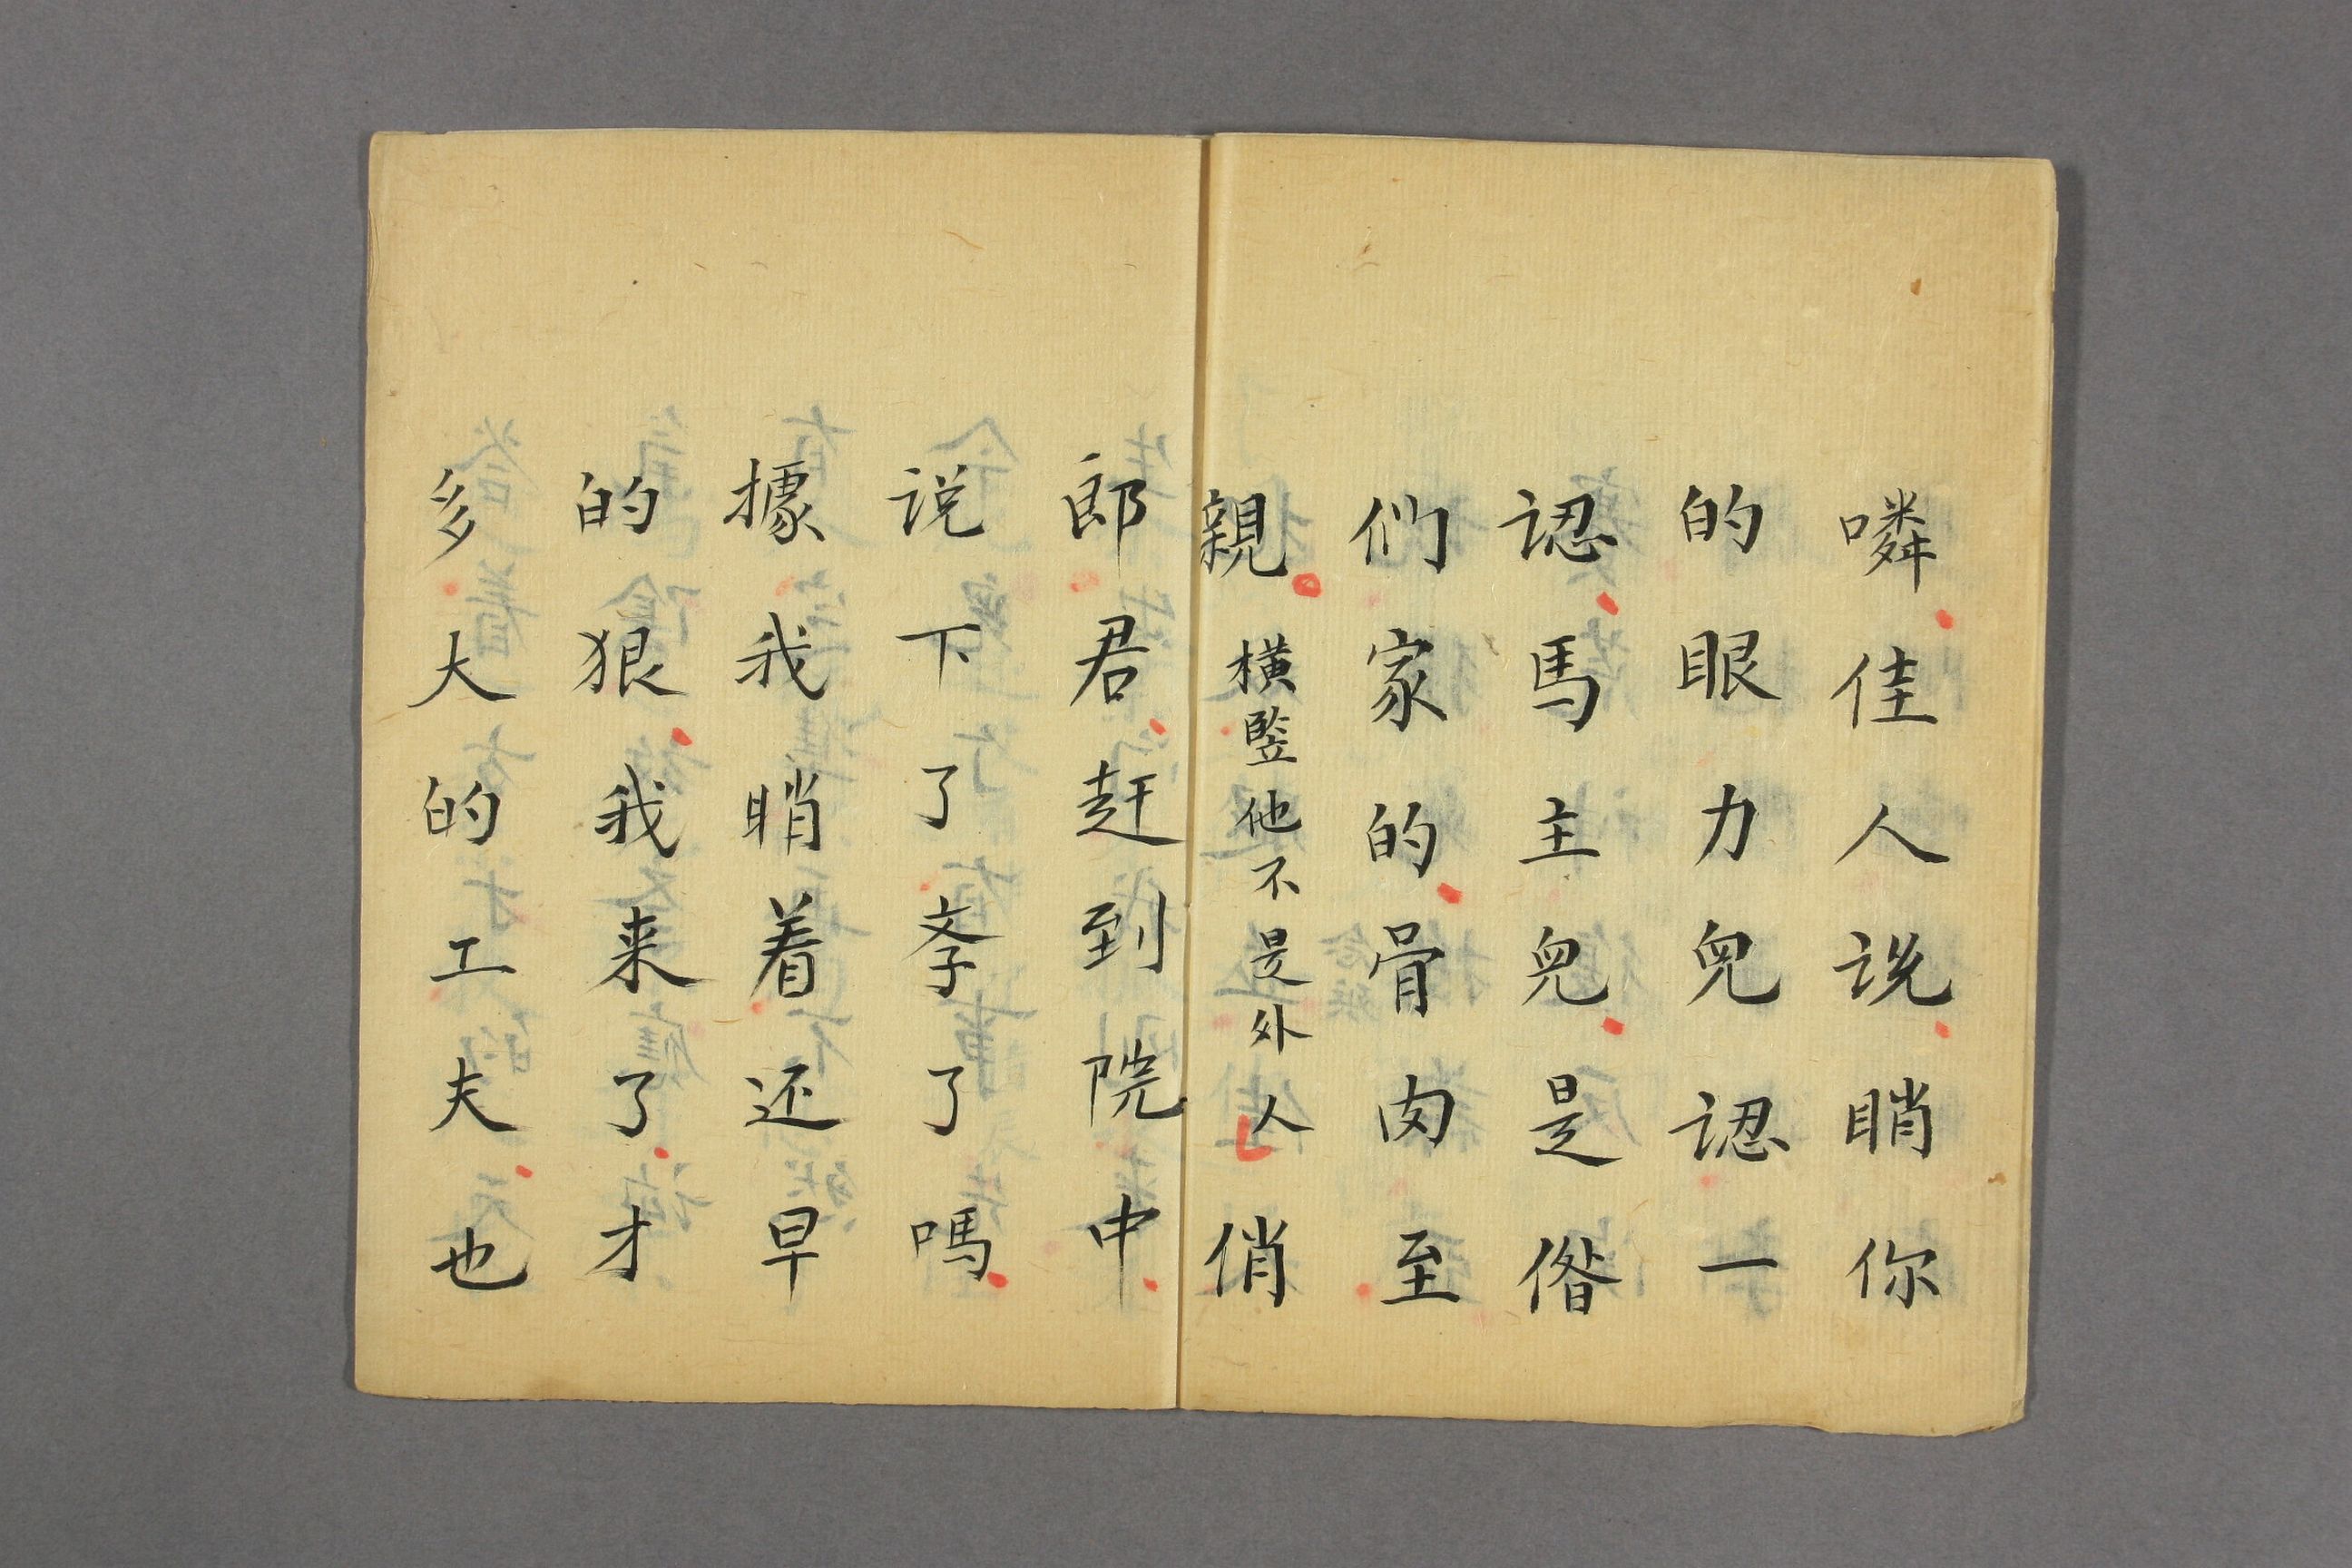 嘹佳人说睄你
的眼力皃認一
認馬主皃是偺
们家的骨肉至
親横竪他不是外人俏
郎君赶到院中
说下了李了嗎
據我睄着还早
的狠我来了才
多大的工夫也